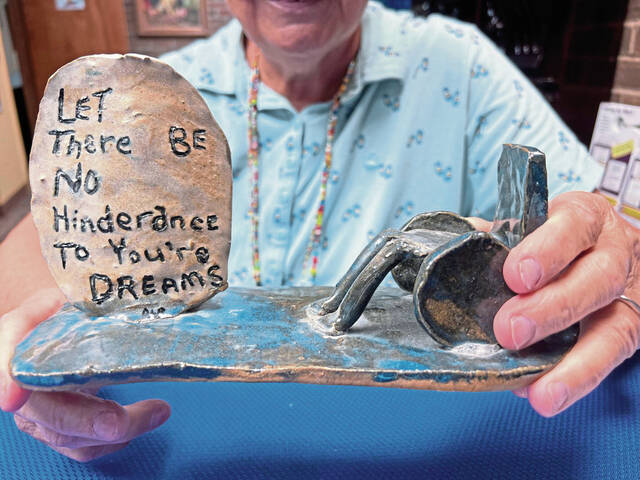 LET
There BE
No
Hinderance
To You're
DREAMS